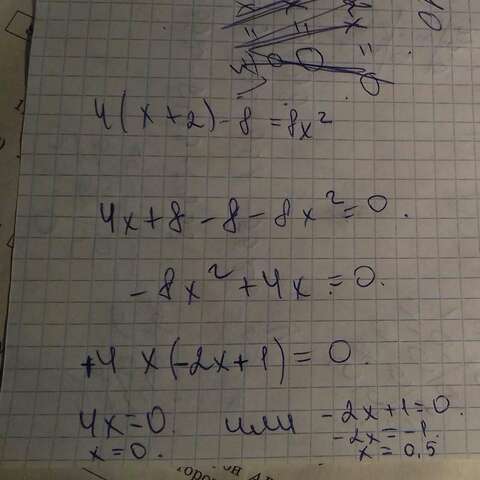 4(x+2)-8=8x²
4x+8-8-8x²=0.
-8x²+4x=0.
+4x(-2x+1)=0.
4x=0. или -2x+1=0.
x=0. -2x=-1.
x=0,5